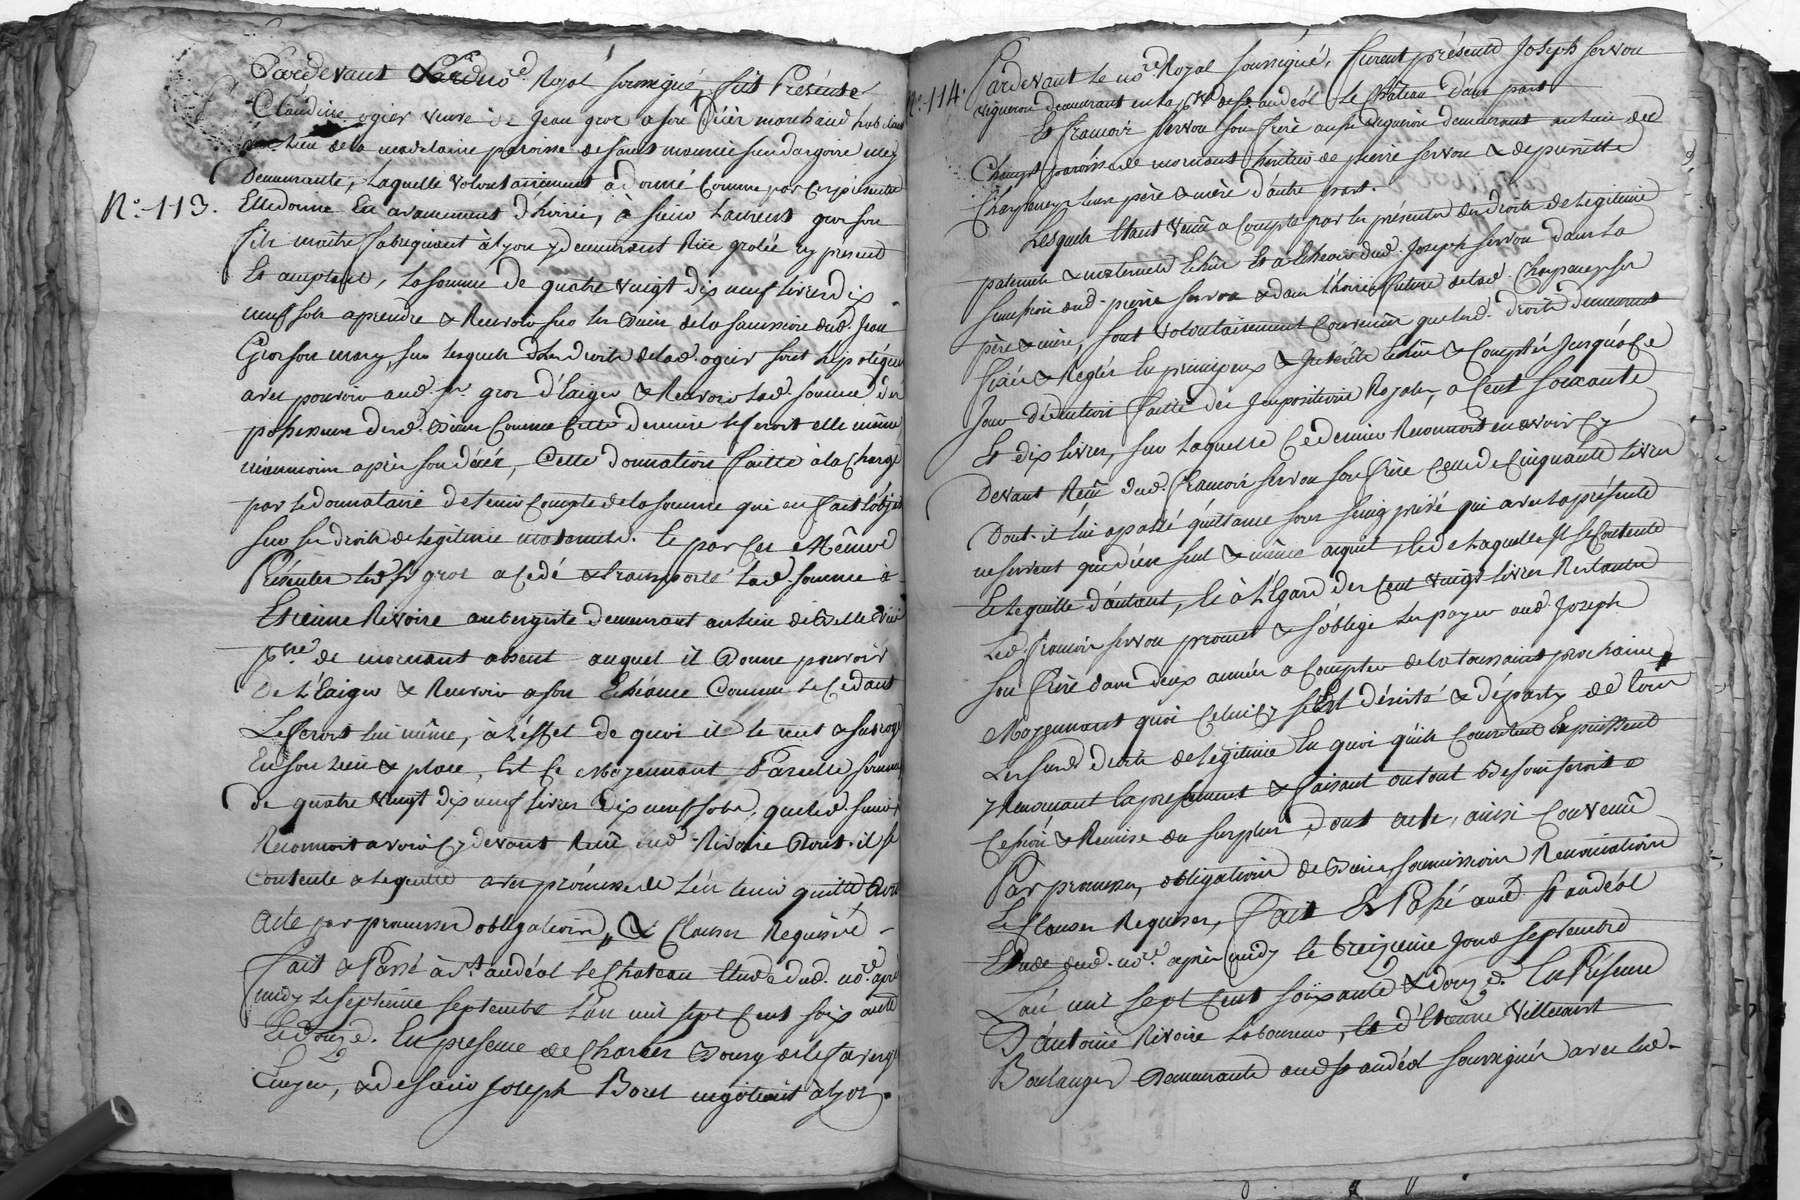 Pardevant Led. no.re Royal soussigné, fut Présente
Claudine ogier veuve de Jean gros
lieu de la madelaine paroisse de saint maurice sur dargoire
demeurante, laquelle volontairement à donné comme par ces présentes
N.o 113.
Elle donne En avancement d'hoirie, à sieur Laurent gros son
fils maitre fabriquant à Lyon y demeurant Rüe grolée cy présent
Et acceptant, la somme de quatre vingt dix neuf livres dix
neuf sols aprendre & Recevoir sur les Biens de la succession dud. Jean
Gros son mary, sur lesquels les droits de lad. ogier sont hipotéqués
avec pouvoir aud. sr. gros d'Exiger & Recevoir lad. somme des
possesseurs desd. Biens comme cette derniere le feroit elle même
néanmoins après son décès, Cette donnation faitte à la charge
par le donnataire de tenir compte de la somme qui en fait l'objet
sur ses droits de légitime maternels. Et par ces Mêmes
Présentes led. sr. gros a cédé & transporté lad. somme à
Etienne Rivoire aubergiste demeurant au lieu de Bellevüe
psse. de mornant absent auquel il donne pouvoir
de l'Exiger & Recevoir a son Echéance comme le cédant
Le feroit lui même, à l'effet de quoi il le met & subroge
En son lieu & place, Et ce Moyennant Pareille somme
de quatre vingt dix neuf livres dix neuf sols, que led. sieur
Reconnoit avoir cy devant Reçû dud. Rivoire dont il se
contente & le quitte avec promesse de l'en tenir quitte dont
acte par promesses obligations, & clauses Requises
fait & Passé à St. andéol le Chateau Etude dud. no.re après
midy le septième septembre L'an mil sept cent soixante
Et douze. En présence de Charles
& de sieur Joseph Boret négotiant à Lyon.
N.o 114.
Pardevant le no.re Royal soussigné, furent présents Joseph servou
vigneron demeurant en la psse de St. andéol le Chateau d'une part
Et francois servou son frère aussi vigneron demeurant au lieu de
paroisse de mornant héritier de pierre servou & de pierrette
Charpenay leurs père & mère d'autre part.
Lesquels Etant venû a compte par les présentes des droits de légitime
paternels & maternels Echûs Et a Echeoir dud. Joseph servou dans la
succession dud. pierre servou & dans l'hoirie future de lad. Charpenay ses
père & mère, sont volontairement convenûs que lesd. droits demeurent
fixés & Réglés En principaux & Interêts Echûs & comptés Jusqu'à ce
Jour déduction faitte des Impositions Royales, a cent soixante
Et dix livres, sur laquelle ce dernier Reconnoit en avoir cy
devant Reçû dud. francois servou son frère celle de cinquante livres
dont il lui a passé quittance sous seing privé qui avec la présente
ne servent que d'un seul & même acquit, de laquelle Il se contente
Et le quitte d'autant, Et à l'Egard des cent vingt livres Restantes
Led. francois servou promet & s'oblige les payer aud. Joseph
son frère dans deux années a compter de la toussaint prochaine,
Moyennant quoi celui cy s'Est désisté & départy de tous
Les susd. droits de légitime En quoi qu'ils consistent & puissent
y Renonçant Expressement & faisant ou tout Besoin seroit
Cession & Remise du surplus, dont acte, ainsi convenû
Par promesses, obligations de Biens soumissions Renonciations
& clauses Requises, fait Et Passé aud. St. andéol
Etude dud. no.re après midy le treizieme Jour septembre
L'an mil sept cent soixante & douze. En Présence
D'antoine Rivoire laboureur, Et d'Etienne Villecourt
Boulanger demeurants aud. St. andéol soussignés avec led.